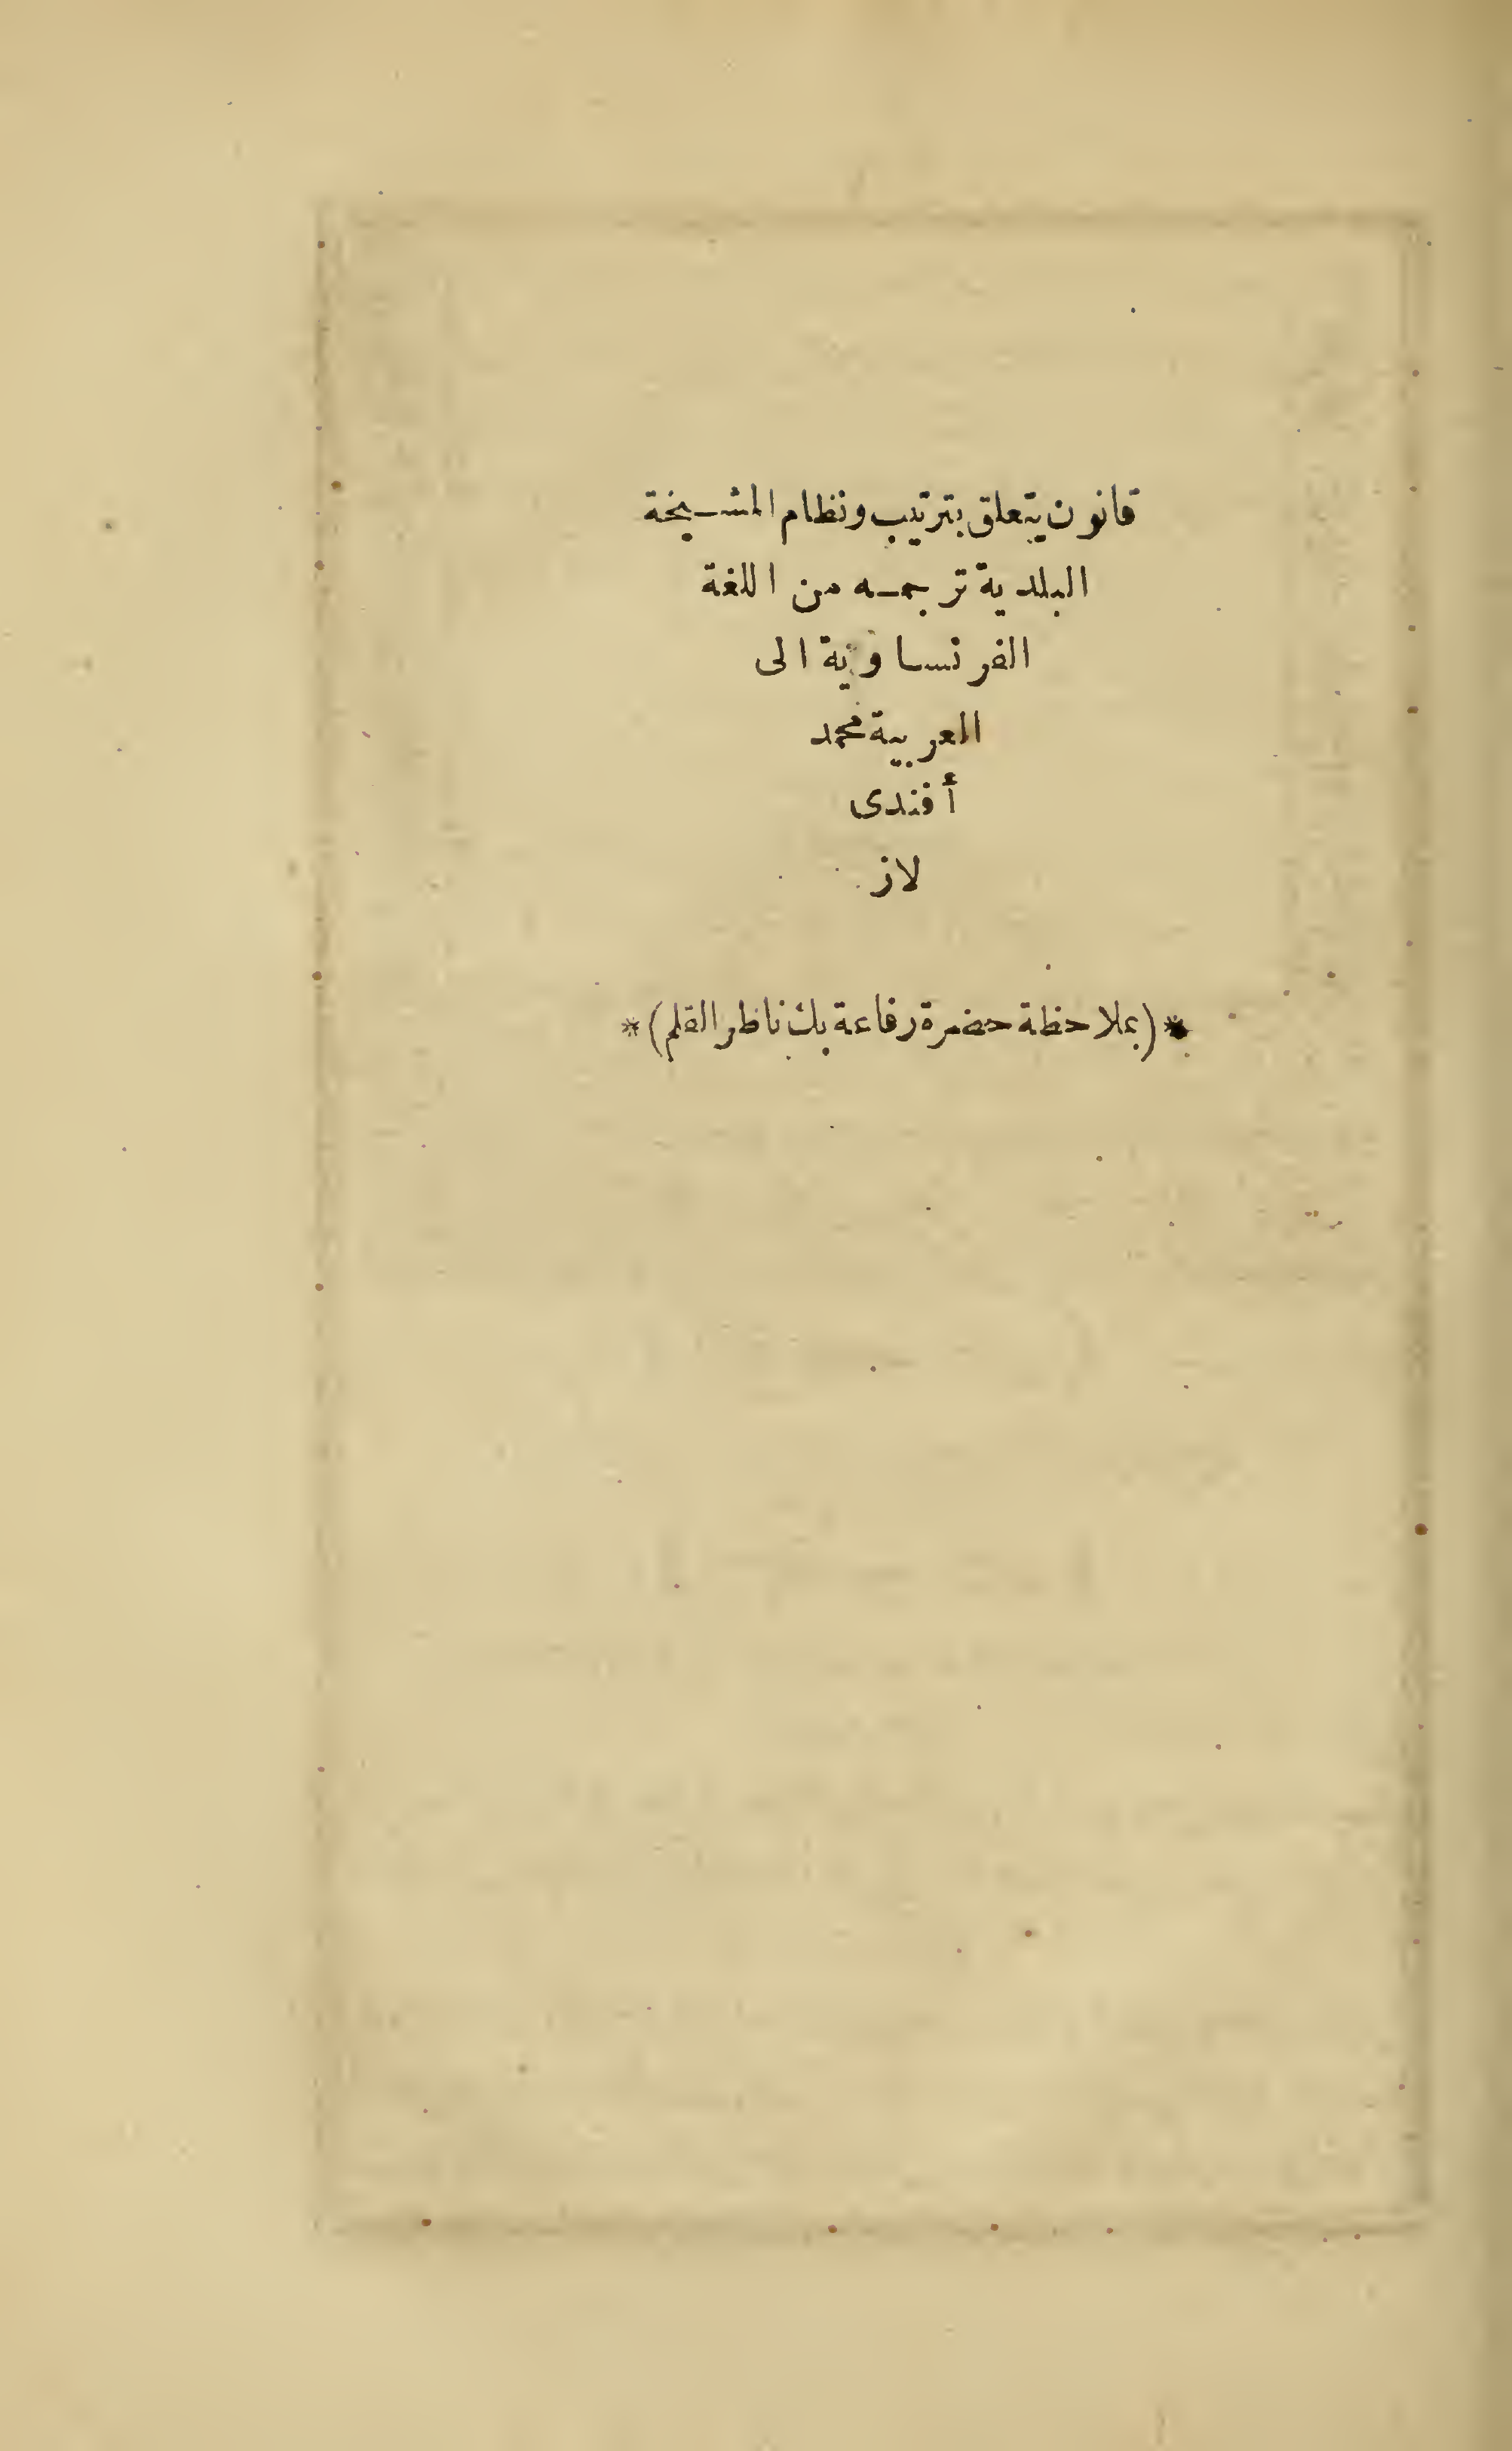 قانون يتعلق بترتيب ونظام المشيخة
البلدية ترجمه من اللغة
الفرنساوية الى
العربية محمد
أفندى
لاز
*(بملاحظة حضرة رفاعة بك ناظر القلم)*